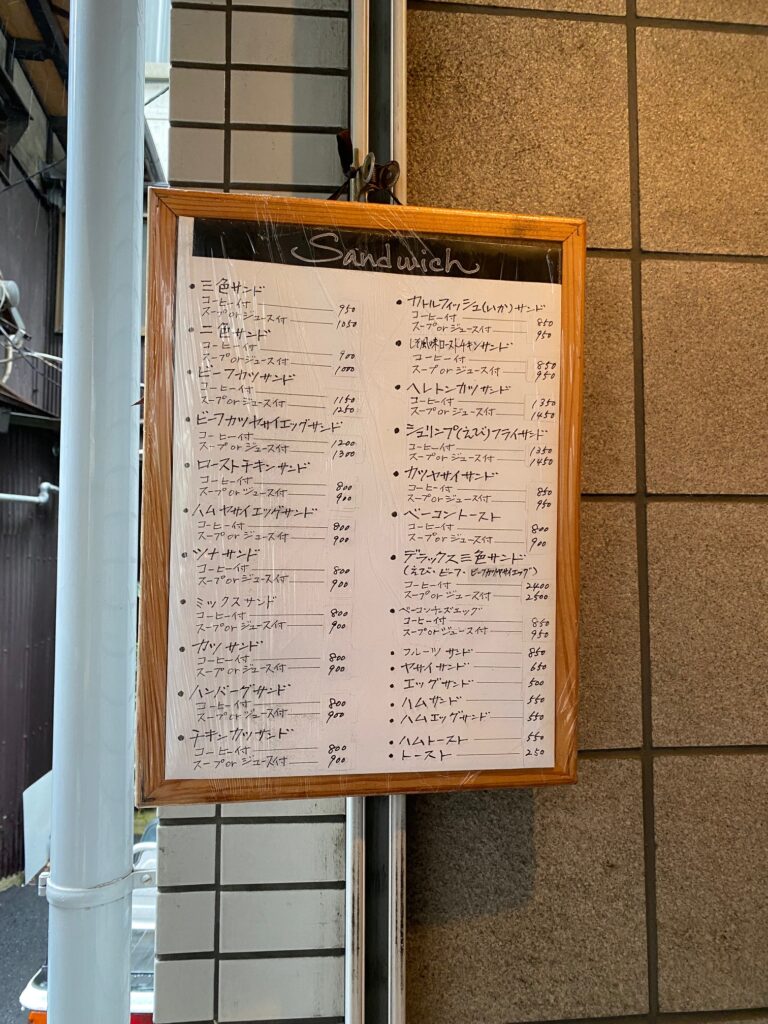 Sandwich
• 三色サンド
コーヒー付 950
スープorジュース付 1050
• 二色サンド
コーヒー付 900
スープorジュース付 1000
• ビーフカツサンド
コーヒー付 1150
スープorジュース付 1250
• ビーフカツヤサイエッグサンド
コーヒー付 1200
スープorジュース付 1300
• ローストチキンサンド
コーヒー付 800
スープorジュース付 900
• ハムヤサイエッグサンド
コーヒー付 800
スープorジュース付 900
• ツナサンド
コーヒー付 800
スープorジュース付 900
• ミックスサンド
コーヒー付 800
スープorジュース付 900
• カツサンド
コーヒー付 800
スープorジュース付 900
• ハンバーグサンド
コーヒー付 800
スープorジュース付 900
• チキンカツサンド
コーヒー付 800
スープorジュース付 900
• カトルフィッシュ(いか)サンド
コーヒー付 850
スープorジュース付 950
• しそ風味ローストチキンサンド
コーヒー付 850
スープorジュース付 950
• ヘレトンカツサンド
コーヒー付 1350
スープorジュース付 1450
• シュリンプ(えび)フライサンド
コーヒー付 1350
スープorジュース付 1450
• カツヤサイサンド
コーヒー付 850
スープorジュース付 950
• ベーコントースト
コーヒー付 800
スープorジュース付 900
• デラックス三色サンド
(えび・ビーフ・ビーフカツヤサイエッグ)
コーヒー付 2400
スープorジュース付 2500
• ベーコンチーズエッグ
コーヒー付 850
スープorジュース付 950
• フルーツサンド 850
• ヤサイサンド 650
• エッグサンド 500
• ハムサンド 550
• ハムエッグサンド 550
• ハムトースト 550
• トースト 250